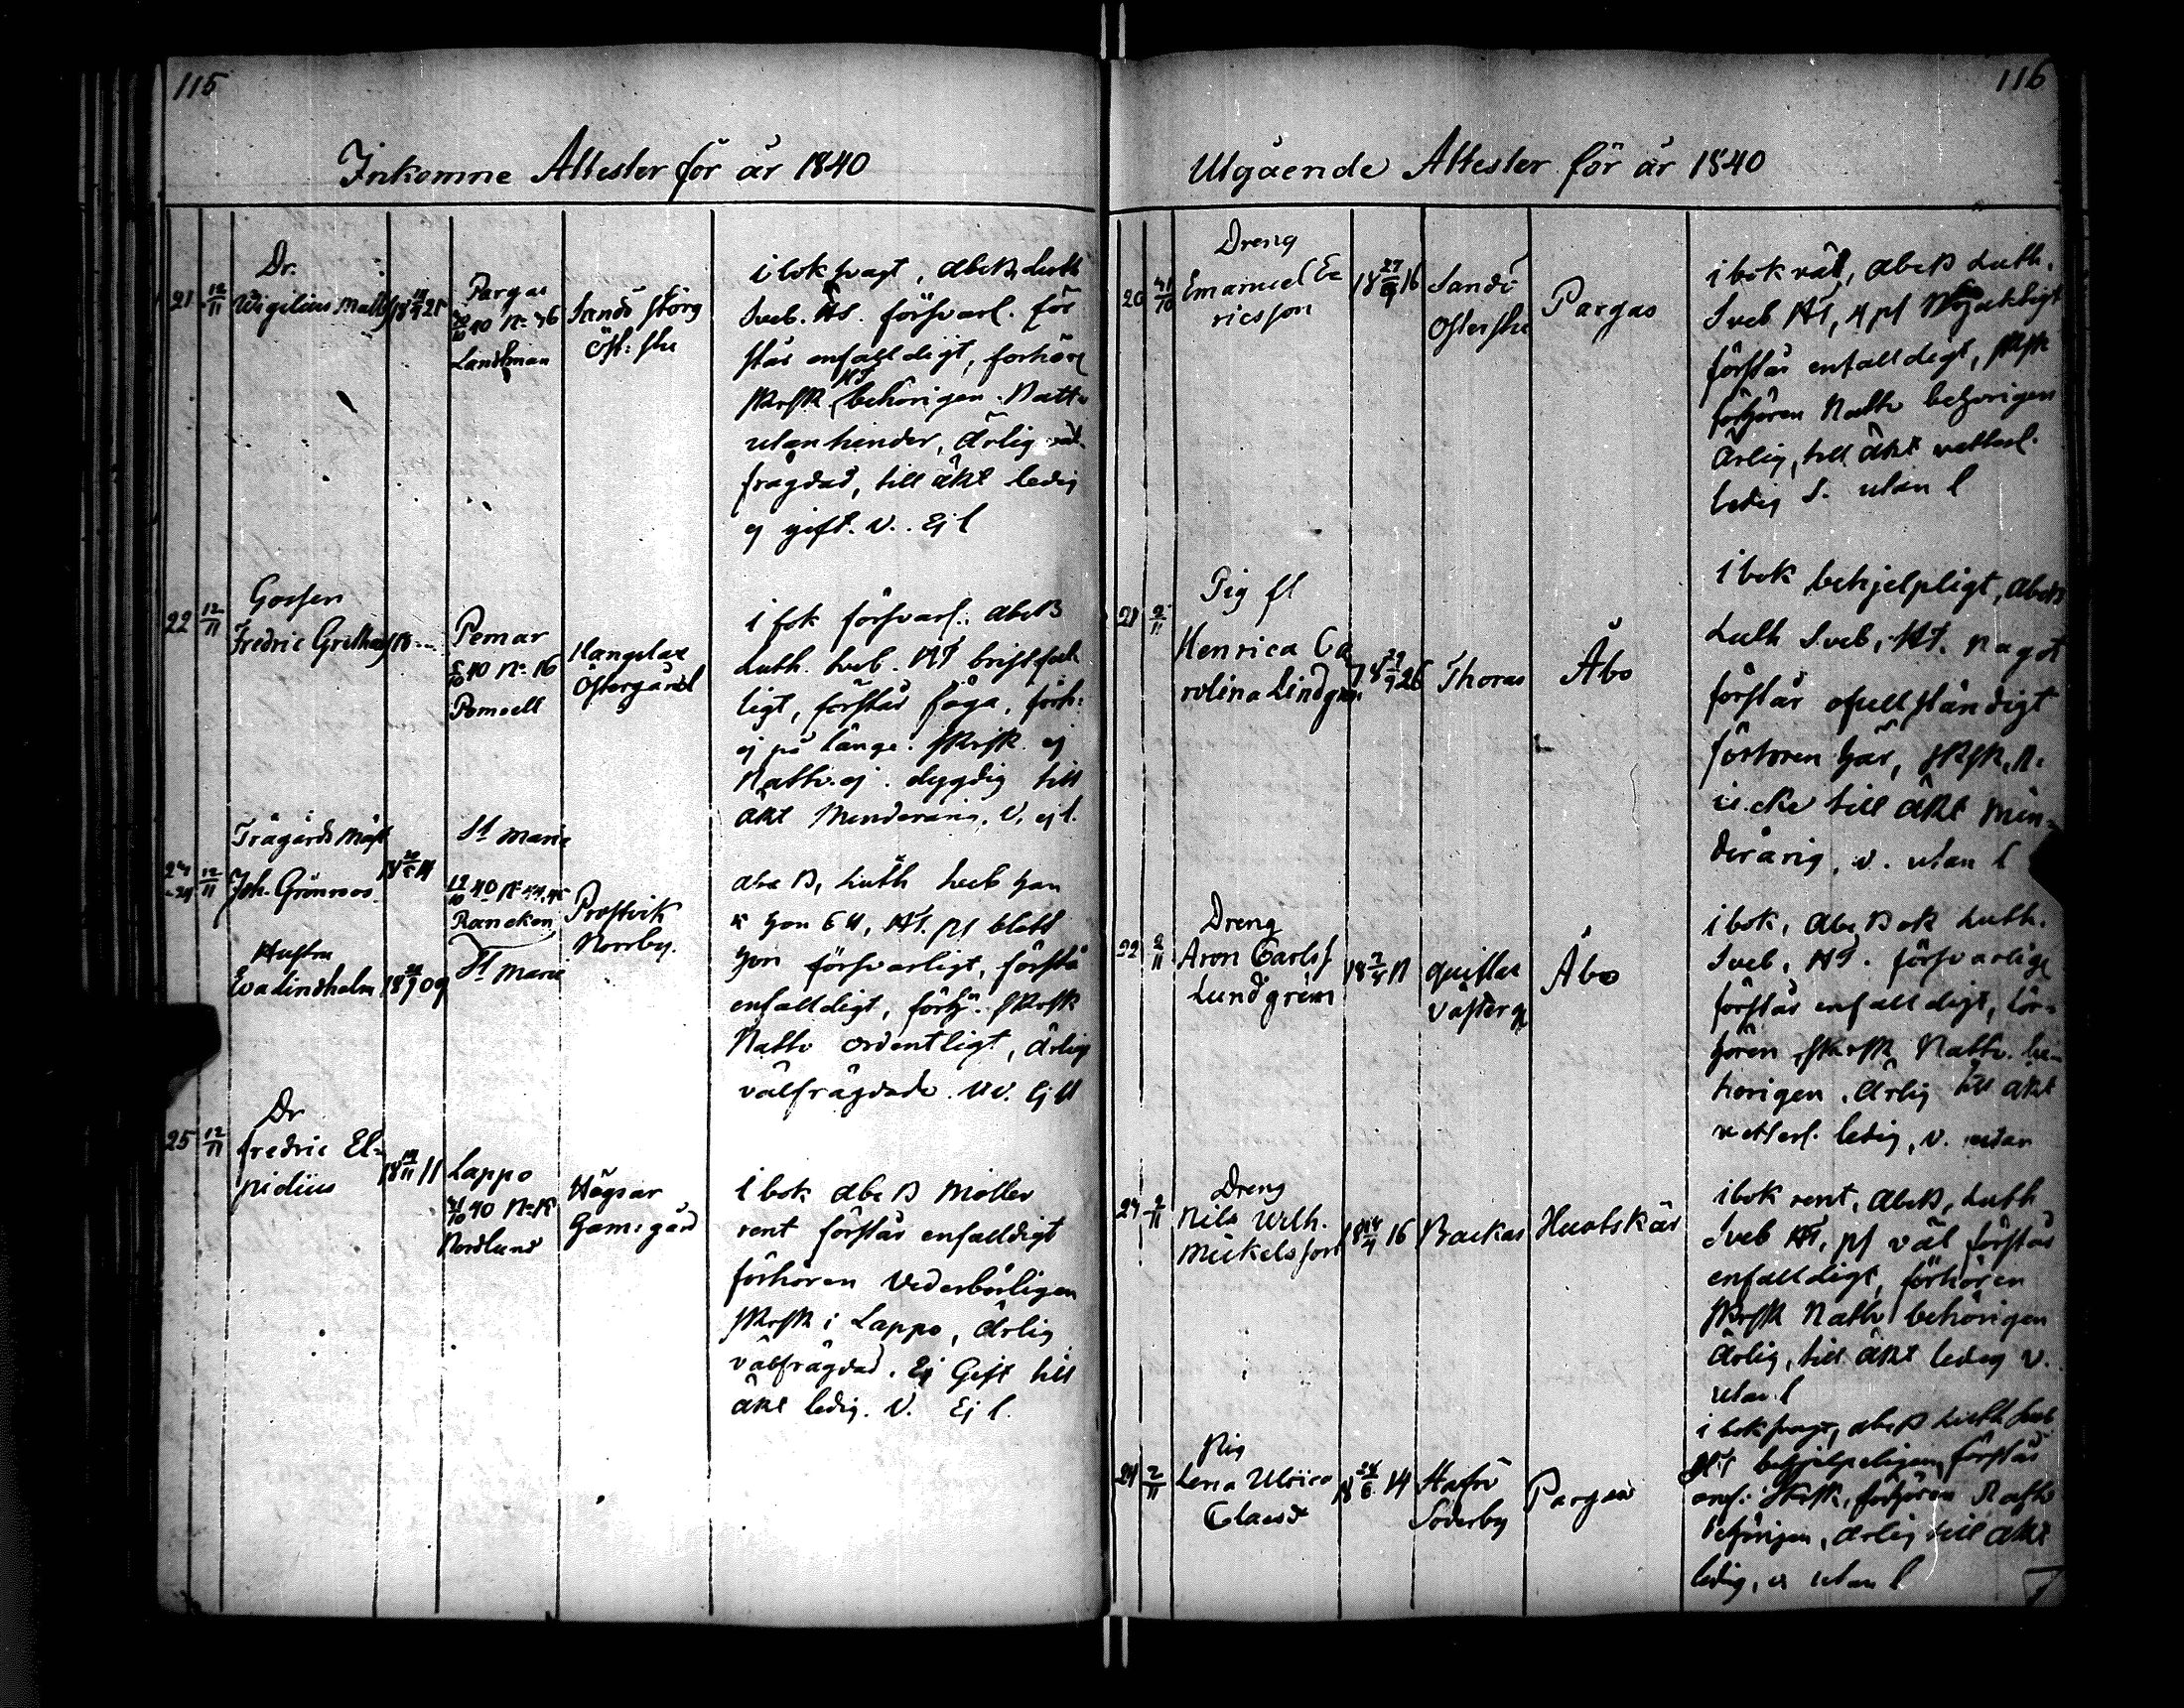 115
Inkomne Attester för år 1840
21 12/11
Dr.
Wigilius Matts
Pargas
40 No 46
Landtman
Sandö Storg
i bok svagt, abcB, Luth
Sveb. HT. försvarl. för
står enfalldigt, förhör
Skrsk HT behörigen. Nattv
utan hinder, Ärlig väl-
frägdad, till äkt ledig
ej gift. V. Ej l
22 12/11
Gossen
Fredric
Pemar
40 No 16
Pomoell
Hangelax
Östergård
i bok försvarl. abcB
Luth. Sveb. HT bristfäl
ligt, förstår föga, förh:
ej på länge. Skrsk. ej
Nattv. ej. dygdig till
äkt Minderårig. V. ej l.
12/11
Trägårds Mäst
Joh. Grönroos
St Marie
19/10 40 No 44, 45
Rancken
St Marie
Hustru
Eva Lindholm
Prostvik
Norrby.
abc B, Luth Sveb han
HT. ps blott
hon försvarligt, förstå
enfalldigt, förhö. Skrsk
Nattv ordentligt, ärlig
välfrägdade. VV. Ej ll
25 12/11
Dr
Fredric El-
pidius
11
Lappo
40
Nordlund
Högsar
Gamlgård
I bok abc B Möller
rent förstår enfalldigt
förhören Vederbörligen
Skrsk i Lappo, ärlig
välfrägdad. Ej Gift till
äkt ledig. V. Ej l.
116
Utgående Attester för år 1840
20
Dreng
Emanuel E
ricsson
18 27/9 16
Sandö
Pargas
i bok väl, abcB Luth.
Sveb HT, 4 ps
förstår enfalldigt, Skrsk
förhören Nattv behörigen
Ärlig, till äkt vetterl.
ledig V. utan l
21 2/11
Pig fl
Henrica Ca
rolina Lindgren
Thoras
Åbo
i bok behjelpligt, abcB
Luth Sveb. HT. något
förstår ofullständigt
förhören här, Skrsk, N.
icke till äkt Min-
derårig, v. utan l
22 2/11
Dreng
Aron Carlss
Lundgrén
Qvistlax
Västerg
Åbo
i bok, abc B ok Luth.
Sveb, HT. försvarlig
förstår enfalldigt, för-
hören Skrsk Nattv. be-
hörigen. Ärlig till äkt
vetterl. ledig, v. utan
2/11
Dreng
Nils Wilh.
Mickelsson
18 14/4 16
Backas
Houtskär
i bok rent, abcB, Luth
Sveb HT, ps väl förstår
enfalldigt, förhören
Skrsk Nattv behörigen
Ärlig, till äkt ledig v.
utan l
24 2/11
Pig
Lena Ulrica
Claesd
Hafrö
Söderby
Pargas
i bok svagt, abcB Luth Sveb
HT behjelpeligen förstår
enf: Skrsk, förhören Nattv
behörigen, ärlig till äkt
ledig, v utan l